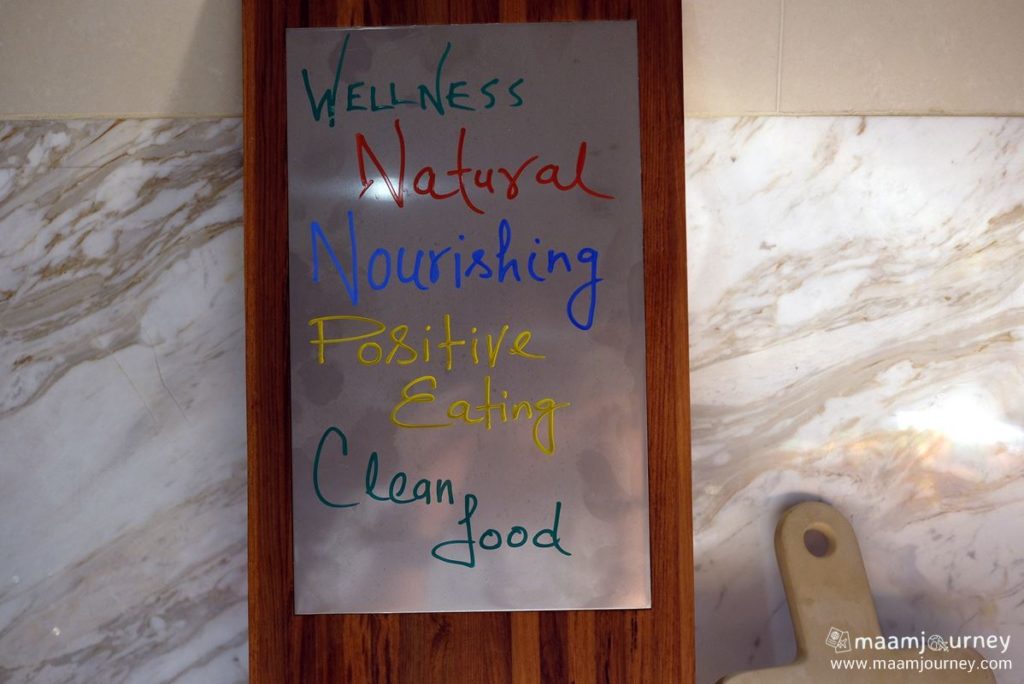 WELLNESS
Natural
Nourishing
Positive
Eating
Clean
food
maamjourney
www.maamjourney.com